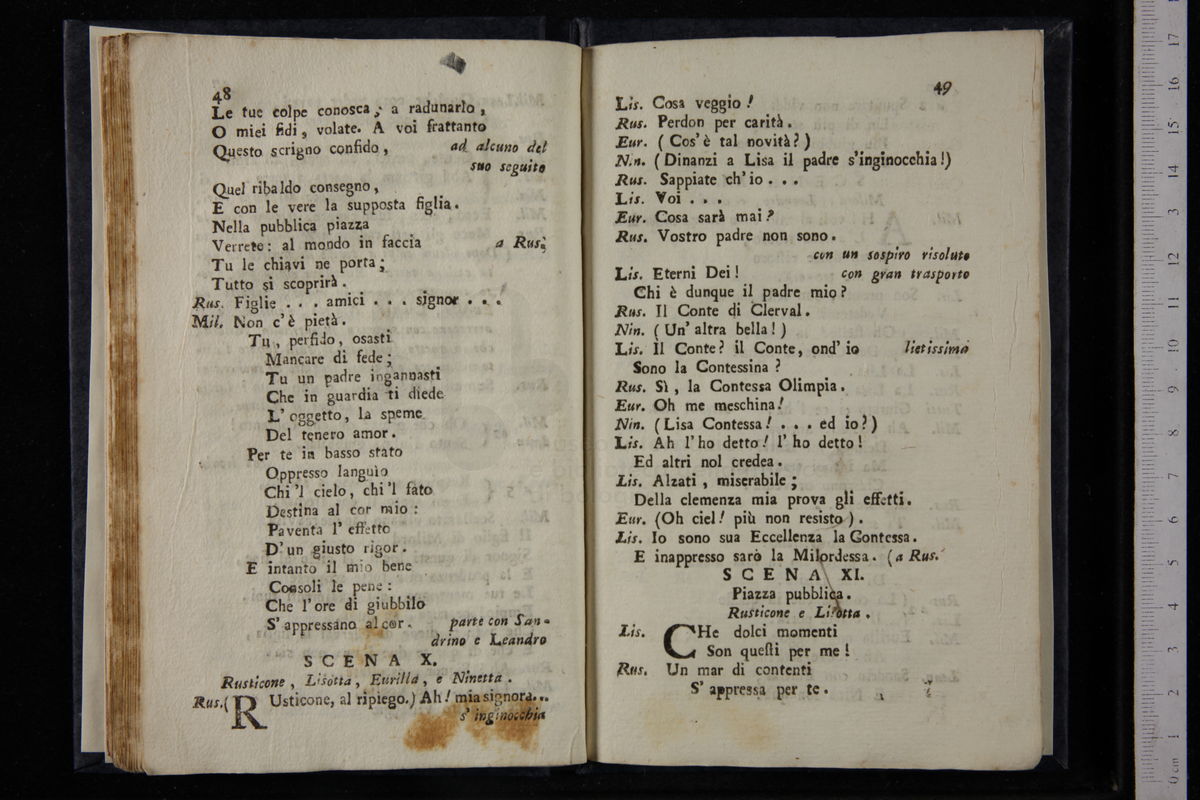 48
Le tue colpe conosca; a radunarlo,
O miei fidi, volate. A voi frattanto
Questo scrigno confido, ad alcuno del
suo seguito
Quel ribaldo consegno,
E con le vere la supposta figlia.
Nella pubblica piazza
Verrete: al mondo in faccia a Rus.
Tu le chiavi ne porta;
Tutto si scoprirà.
Rus. Figlie . . . amici . . . signor . . .
Mil. Non c'è pietà.
Tu, perfido, osasti
Mancare di fede;
Tu un padre ingannasti
Che in guardia ti diede
L'oggetto, la speme
Del tenero amor.
Per te in basso stato
Oppresso languìo
Chi 'l cielo, chi 'l fato
Destina al cor mio:
Paventa l' effetto
D' un giusto rigor.
E intanto il mio bene
Consoli le pene:
Che l'ore di giubbilo
S' appressano al cor. parte con San-
drino e Leandro
SCENA X.
Rusticone, Lisotta, Eurilla, e Ninetta.
Rus. (RUsticone, al ripiego.) Ah! mia signora...
s' inginocchia
49
Lis. Cosa veggio!
Rus. Perdon per carità.
Eur. (Cos' è tal novità?)
Nin. (Dinanzi a Lisa il padre s'inginocchia!)
Rus. Sappiate ch' io . . .
Lis. Voi . . .
Eur. Cosa sarà mai?
Rus. Vostro padre non sono.
con un sospiro risoluto
Lis. Eterni Dei! con gran trasporto
Chi è dunque il padre mio?
Rus. Il Conte di Clerval.
Nin. (Un' altra bella!)
Lis. Il Conte? il Conte, ond' io lietissima
Sono la Contessina?
Rus. Sì, la Contessa Olimpia.
Eur. Oh me meschina!
Nin. (Lisa Contessa! . . . ed io?)
Lis. Ah l'ho detto! l' ho detto!
Ed altri nol credea.
Lis. Alzati, miserabile;
Della clemenza mia prova gli effetti.
Eur. (Oh ciel! più non resisto).
Lis. Io sono sua Eccellenza la Contessa.
E inappresso sarò la Milordessa. (a Rus.
SCENA XI.
Piazza pubblica.
Rusticone e Lisotta.
Lis. CHe dolci momenti
Son questi per me!
Rus. Un mar di contenti
S' appressa per te.